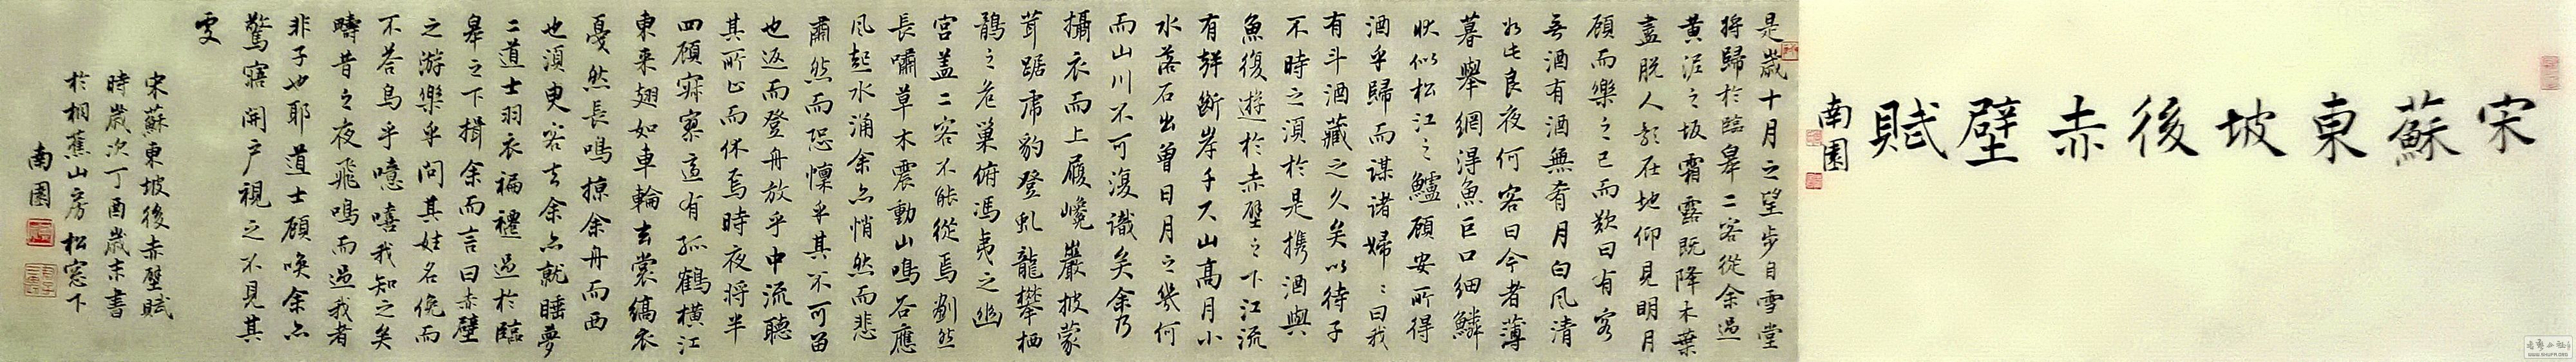 宋蘇東坡後赤壁賦
南園
是歲十月之望步自雪堂
將歸於臨皋二客從余過
黃泥之坂霜露既降木葉
盡脫人影在地仰見明月
顧而樂之已而歎曰有客
無酒有酒無肴月白風清
如此良夜何客曰今者薄
暮舉網得魚巨口細鱗
狀似松江之鱸顧安所得
酒乎歸而謀諸婦〻曰我
有斗酒藏之久矣以待子
不時之須於是携酒與
魚復遊於赤壁之下江流
有聲斷岸千尺山高月小
水落石出曾日月之幾何
而山川不可復識矣余乃
攝衣而上履巉巖披蒙
茸踞虎豹登虬龍攀栖
鶻之危巢俯馮夷之幽
宮蓋二客不能從焉劃然
長嘯草木震動山鳴谷應
風起水涌余亦悄然而悲
肅然而恐懍乎其不可留
也返而登舟放乎中流聽
其所止而休焉時夜将半
四顧寂寥適有孤鶴橫江
東来翅如車輪玄裳縞衣
戛然長鳴掠余舟而西
也須臾客去余亦就睡夢
二道士羽衣褊褼過於臨
皋之下揖余而言曰赤壁
之游樂乎問其姓名俛而
不答烏乎噫嘻我知之矣
疇昔之夜飛鳴而過我者
非子也耶道士顧喚余亦
驚寤開户視之不見其
處
宋蘇東坡後赤壁賦
時歲次丁酉歲末書
於相蕉山房松窓下
南園